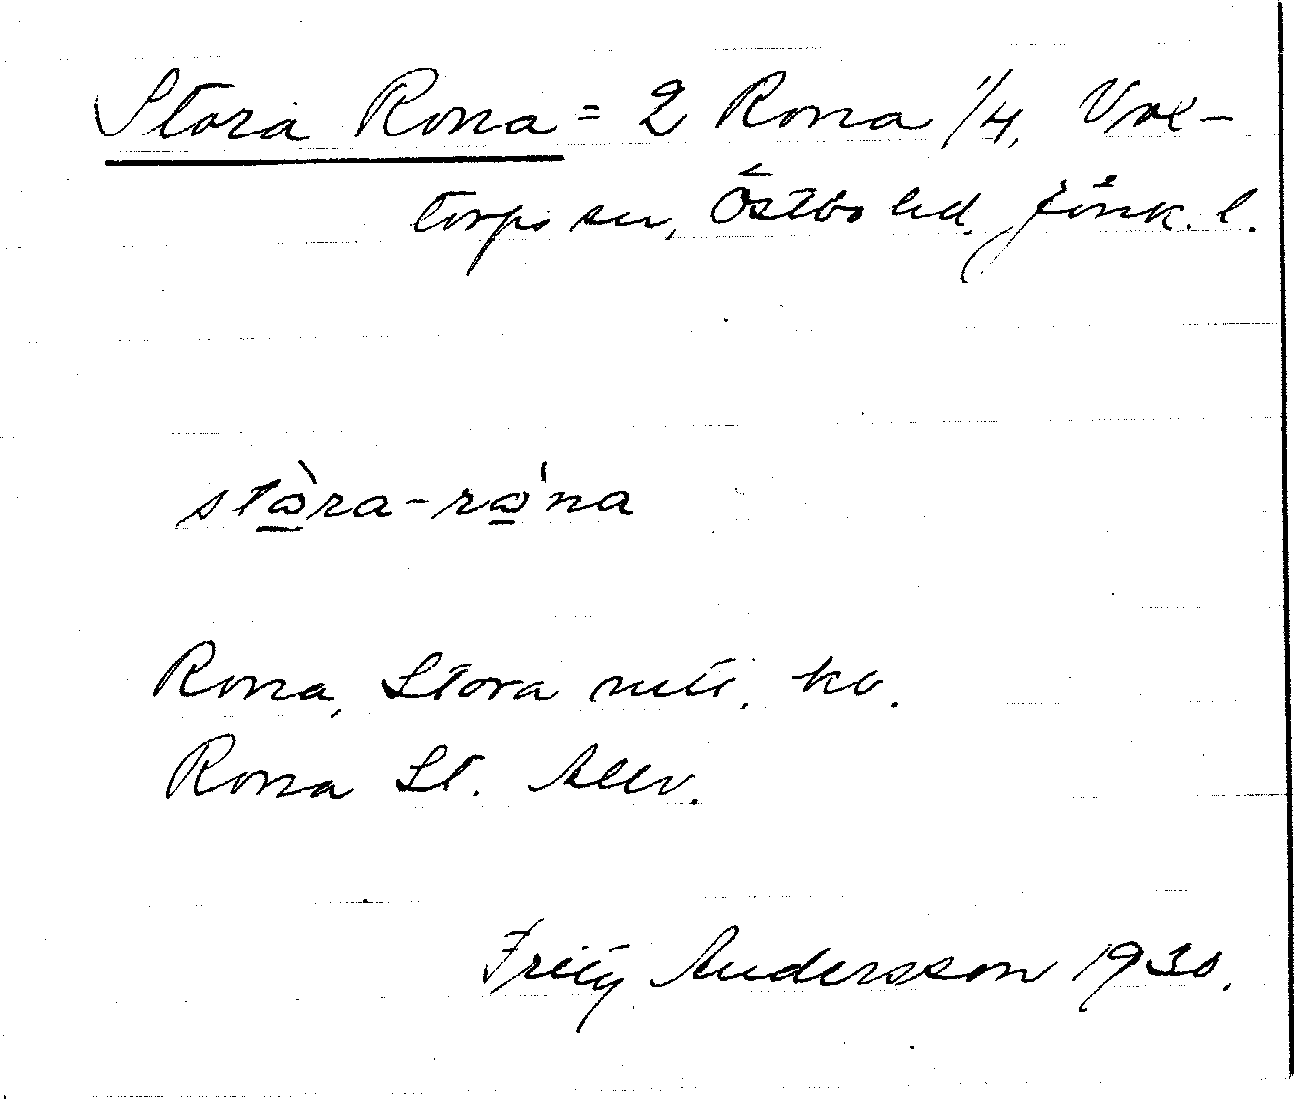 Stora Rona = 2 Rona 1/4, Vrol-
torps sn, Östbo hd. Jönk. l.
stὼ̲ra-rώ̲na
Rona, Stora mtl. ko.
Rona St.
Fritz Andersson 1930.